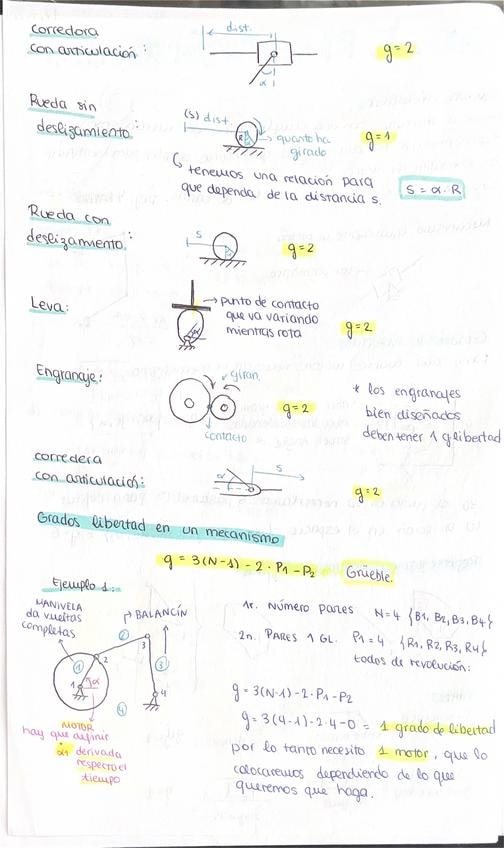 corredora
con articulación:
dist.
α
g=2
Rueda sin
deslizamiento:
(s) dist.
R
cuanto ha
girado
g=1
tenemos una relación para
que dependa de la distancia s.
S = α · R
Rueda con
deslizamiento:
s
g=2
Leva:
punto de contacto
que va variando
mientras rota
g=2
Engranaje:
giran
contacto
g=2
* los engranajes
bien diseñados
deben tener 1 g libertad
corredera
con articulación:
α
s
g=2
Grados libertad en un mecanismo
g = 3(N-1) - 2·P1 - P2
Grüeble.
Ejemplo 1:
MANIVELA
da vueltas
completas
BALANCÍN
1
2
3
4
1
2
3
4
α
MOTOR
hay que definir
α̇1 derivada
respecto el
tiempo
1r. Número pares N=4 {B1, B2, B3, B4}
2n. PARES 1 GL. P1=4 {R1, R2, R3, R4}
todos de revolución:
g = 3(N-1) - 2·P1 - P2
g = 3(4-1) - 2·4 - 0 = 1 grado de libertad
por lo tanto necesito 1 motor, que lo
colocaremos dependiendo de lo que
queremos que haga.